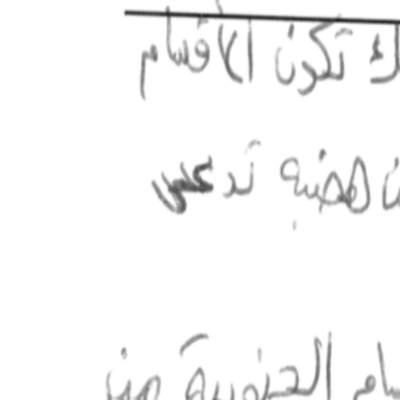 ك تكون الأقسام
ن هضبة تدعى
سام الجنوبية من